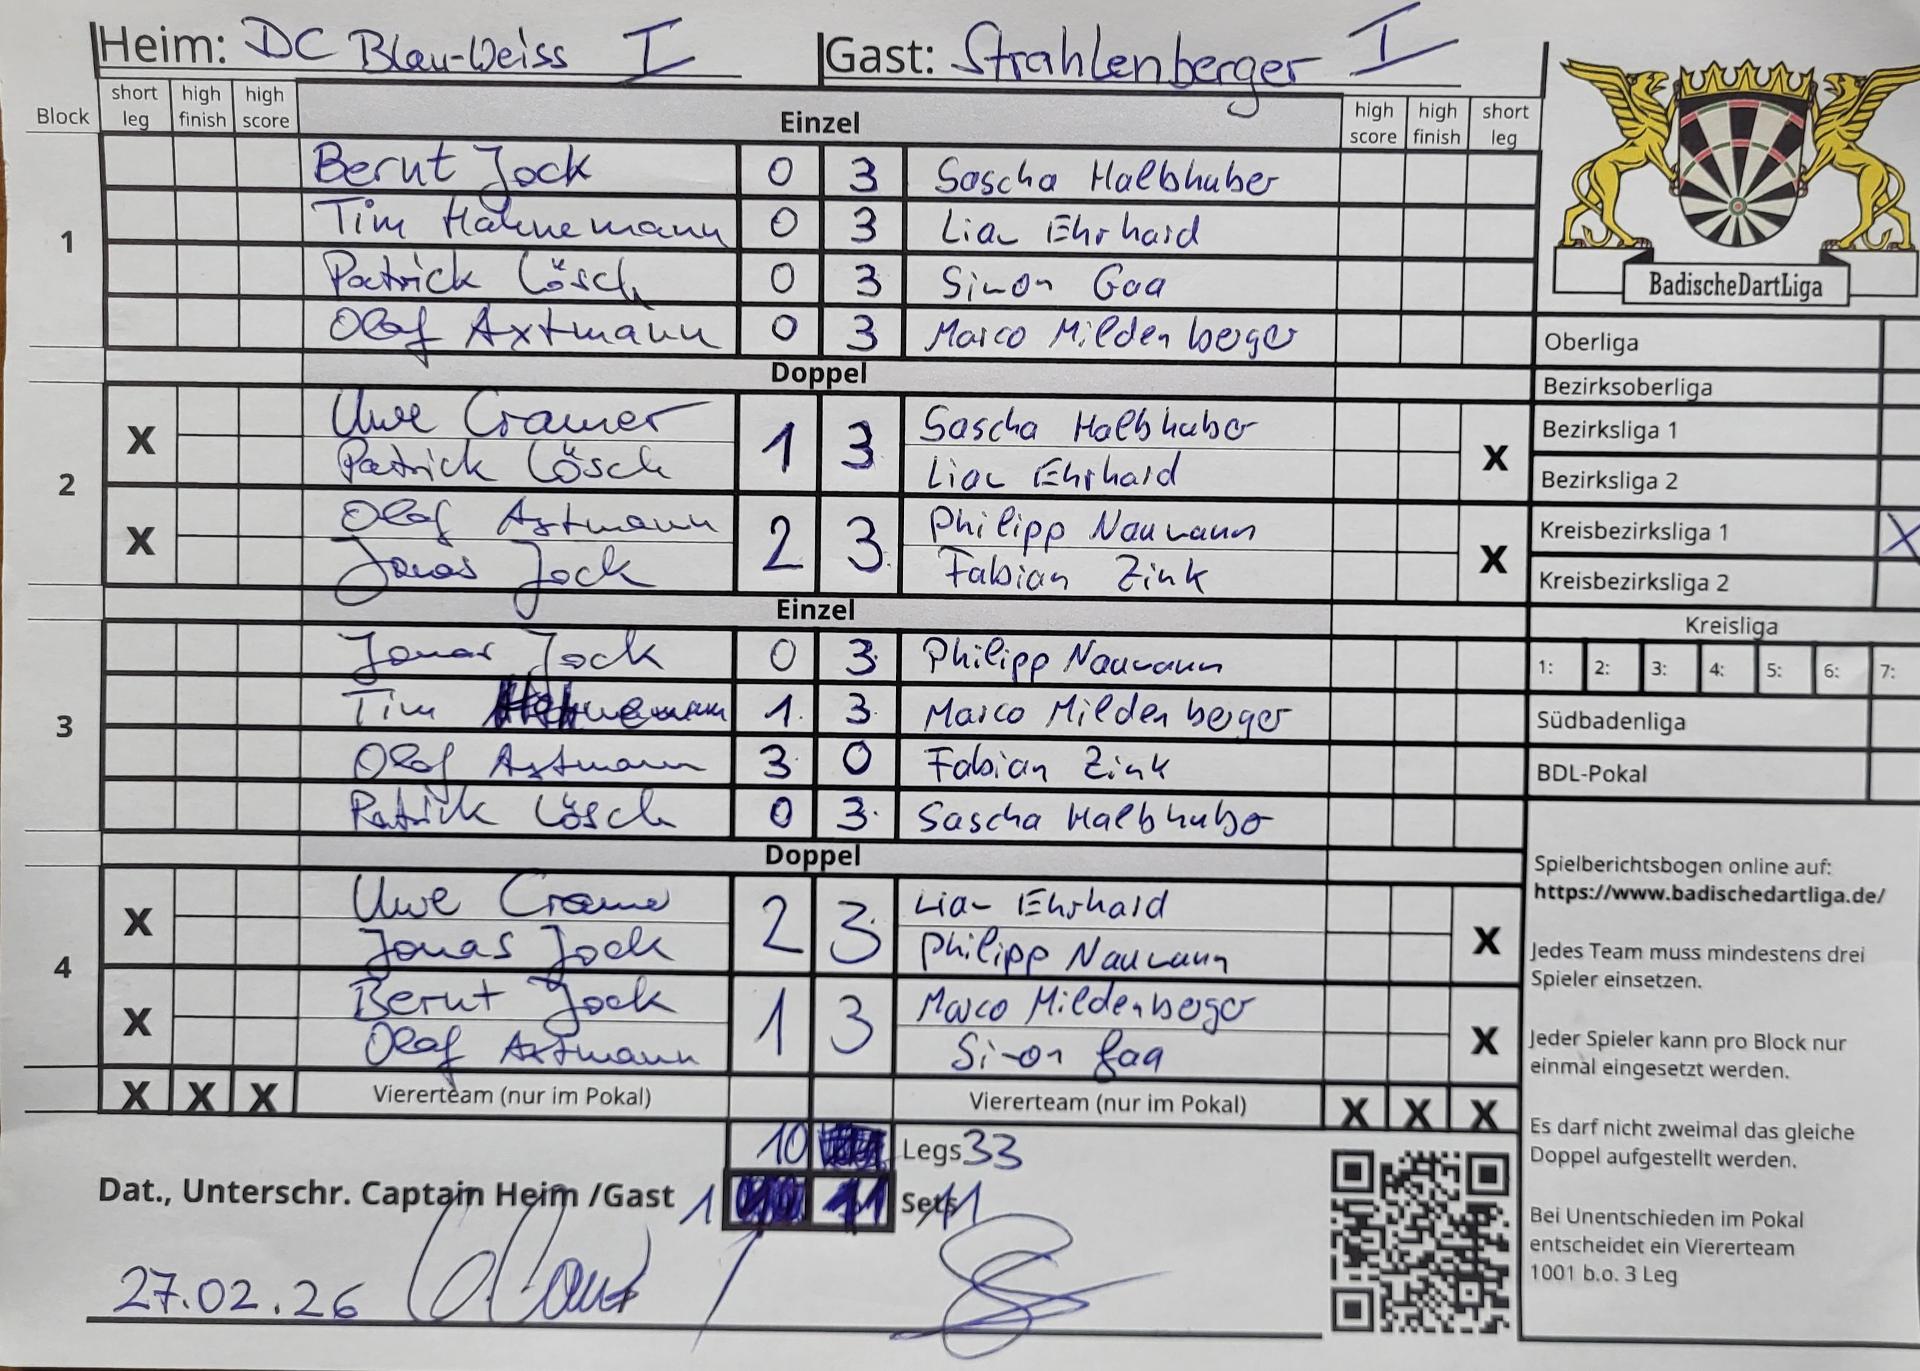 Heim: DC Blau-Weiss I Gast: Strahlenberger I
Block short leg high finish high score Einzel high score high finish short leg
1
Bernt Jock 0 3 Sascha Halbhuber
Tim Hahnemann 0 3 Liam Ehrhard
Patrick Lösch 0 3 Simon Gaa
Olaf Axtmann 0 3 Marco Mildenberger
Doppel
2
X Uwe Cramer 1 3 Sascha Halbhuber X
Patrick Lösch Liam Ehrhard
X Olaf Axtmann 2 3 Philipp Naumann X
Jonas Jock Fabian Zink
Einzel
3
Jonas Jock 0 3 Philipp Naumann
Tim Hahnemann 1 3 Marco Mildenberger
Olaf Axtmann 3 0 Fabian Zink
Patrick Lösch 0 3 Sascha Halbhuber
Doppel
4
X Uwe Cramer 2 3 Liam Ehrhard X
Jonas Jock Philipp Naumann
X Bernt Jock 1 3 Marco Mildenberger X
Olaf Axtmann Simon Gaa
X X X Viererteam (nur im Pokal) Viererteam (nur im Pokal) X X X
10 Legs 33
Dat., Unterschr. Captain Heim /Gast 1 Sets 11
27.02.26
BadischeDartLiga
Oberliga
Bezirksoberliga
Bezirksliga 1
Bezirksliga 2
Kreisbezirksliga 1 X
Kreisbezirksliga 2
Kreisliga
1: 2: 3: 4: 5: 6: 7:
Südbadenliga
BDL-Pokal
Spielberichtsbogen online auf:
https://www.badischedartliga.de/
Jedes Team muss mindestens drei
Spieler einsetzen.
Jeder Spieler kann pro Block nur
einmal eingesetzt werden.
Es darf nicht zweimal das gleiche
Doppel aufgestellt werden.
Bei Unentschieden im Pokal
entscheidet ein Viererteam
1001 b.o. 3 Leg